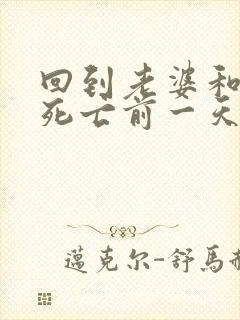 回到老婆和
死亡前一天
邁克尔-舒馬赫